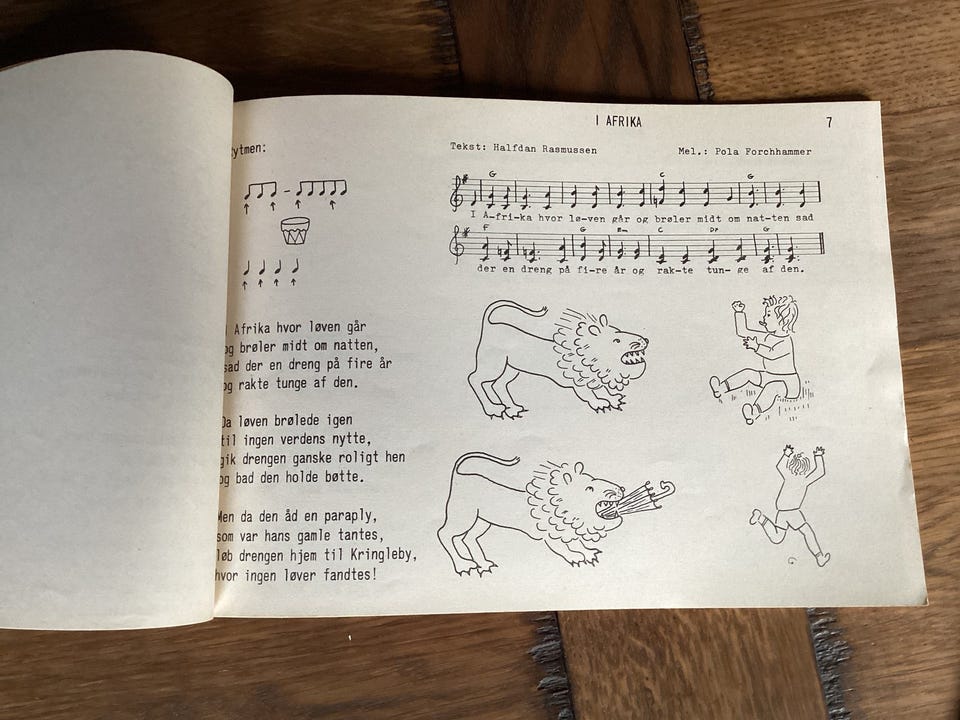 I AFRIKA
7
ytmen:
Tekst: Halfdan Rasmussen
Mel.: Pola Forchhammer
G C G
I A-fri-ka hvor lø-ven går og brøler midt om nat-ten sad
F G Em C D7 G
der en dreng på fi-re år og rak-te tun- ge af den.
I Afrika hvor løven går
og brøler midt om natten,
sad der en dreng på fire år
og rakte tunge af den.
Da løven brølede igen
til ingen verdens nytte,
gik drengen ganske roligt hen
og bad den holde bøtte.
Men da den åd en paraply,
som var hans gamle tantes,
løb drengen hjem til Kringleby,
hvor ingen løver fandtes!